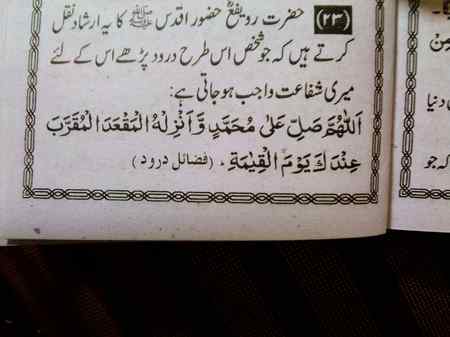 (۲۳) حضرت رویفع حضور اقدس ﷺ کا یہ ارشاد نقل
کرتے ہیں کہ جو شخص اس طرح درود پڑھے اس کے لئے
میری شفاعت واجب ہو جاتی ہے:
اَللّٰهُمَّ صَلِّ عَلٰى مُحَمَّدٍ وَّاَنْزِلْهُ الْمَقْعَدَ الْمُقَرَّبَ
عِنْدَكَ يَوْمَ الْقِيٰمَةِ، (فضائل درود)
مِنْ
دنیا
کہ جو